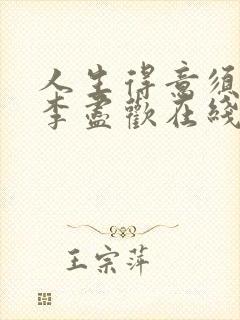 人生得意须
李盡歡在綫
王宗萍